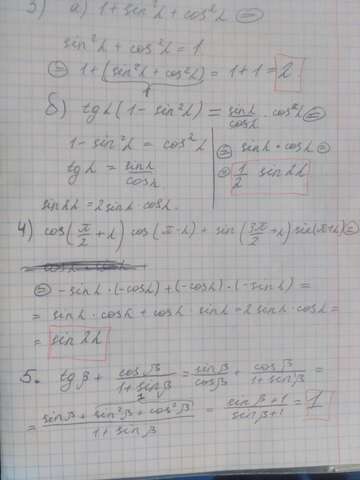 3) а) 1 + sin²α + cos²α =
sin²α + cos²α = 1
= 1 + (sin²α + cos²α) = 1 + 1 = 2
1
б) tgα(1 - sin²α) = sinα/cosα · cos²α =
1 - sin²α = cos²α
= sinα · cosα =
tgα = sinα/cosα
= 1/2 sin2α
sin2α = 2sinα · cosα.
4) cos(π/2 + α) cos(π-α) + sin(3π/2 + α) sin(π+α) =
= -sinα · (-cosα) + (-cosα) · (-sinα) =
= sinα · cosα + cosα · sinα = 2sinα · cosα =
= sin2α
5. tgβ + cosβ/(1+sinβ) = sinβ/cosβ + cosβ/(1+sinβ) =
1
= (sinβ + sin²β + cos²β)/(1+sinβ) = (sinβ+1)/(sinβ+1) = 1